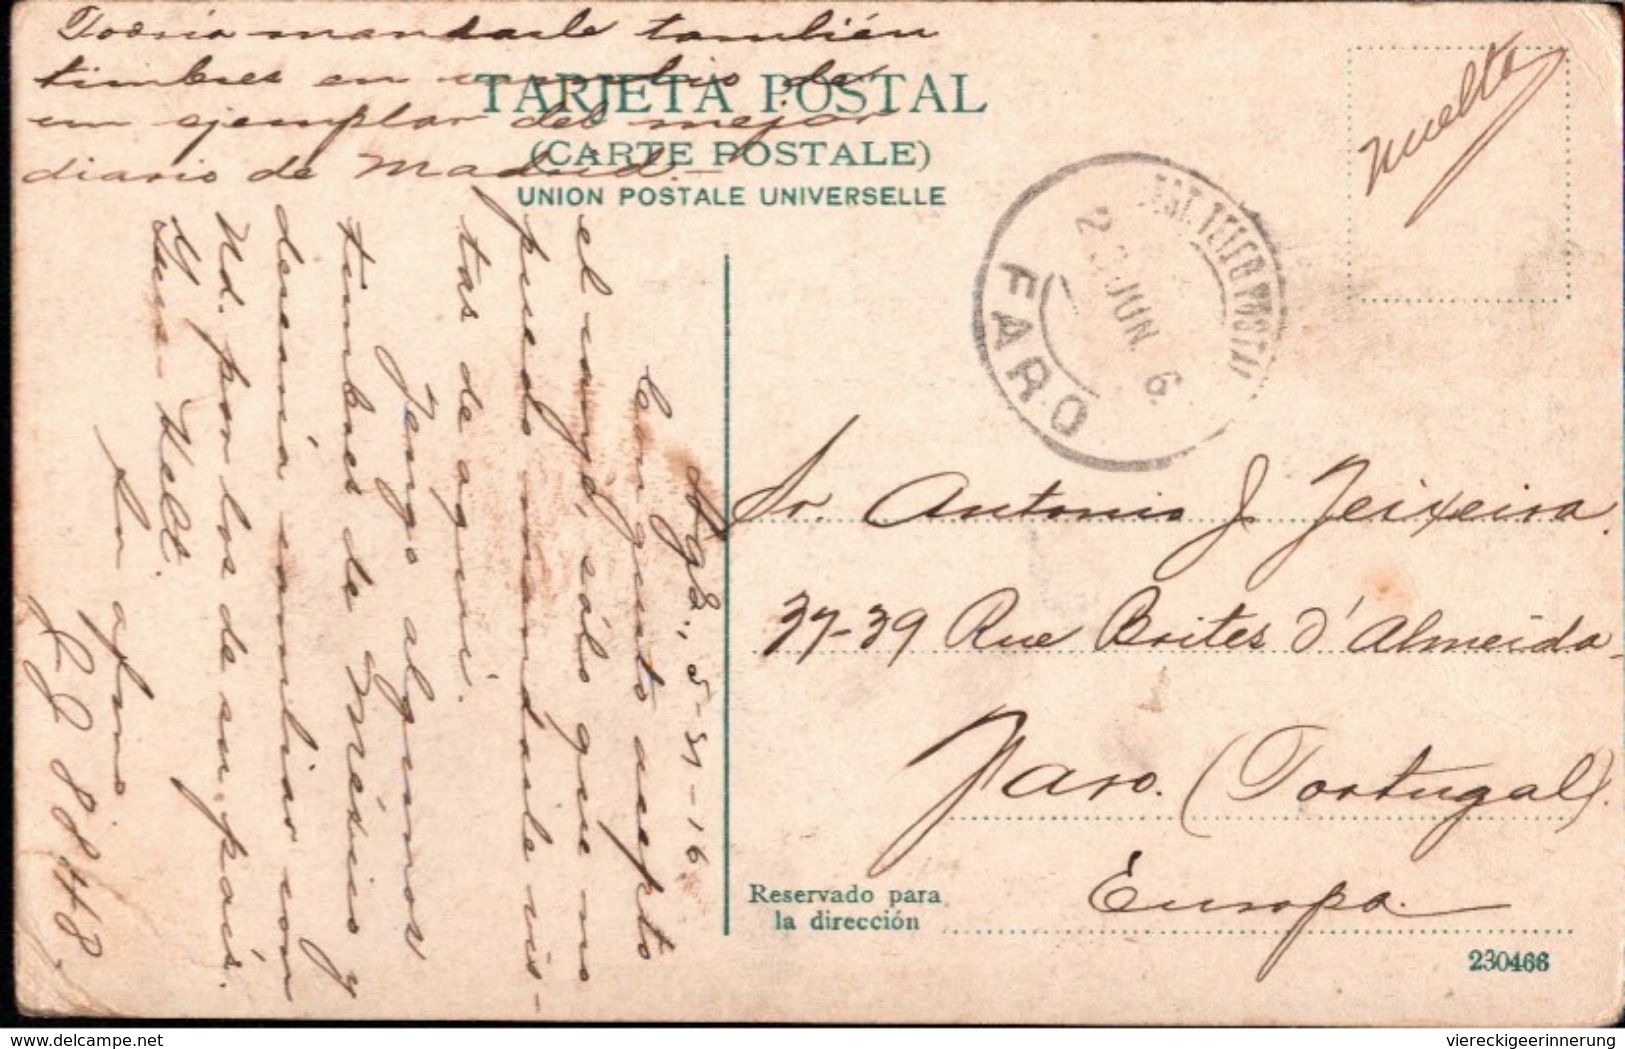 Podría mandarle también
timbres en cambio de
un ejemplar del mejor
diario de Madrid.-
TARJETA POSTAL
(CARTE POSTALE)
UNION POSTALE UNIVERSELLE
Vuelta
EST. TELEGRO POSTAL
2 JUN. 6
FARO
5-31-16
Con gusto acepto
el cange, sólo que no
puedo mandarle vis-
tas de aquí.
Tengo algunos
timbres de México y
desearía cambiar con
Ud. por los de su país.
Su afmo
LL 8848
Sr. Antonio J. Teixeira.
37-39 Rue Brites d'Almeida-
Faro. (Portugal).
Europa.
Reservado para
la dirección
230466
ansichtskarten-center.de
viereckigeerinnerung